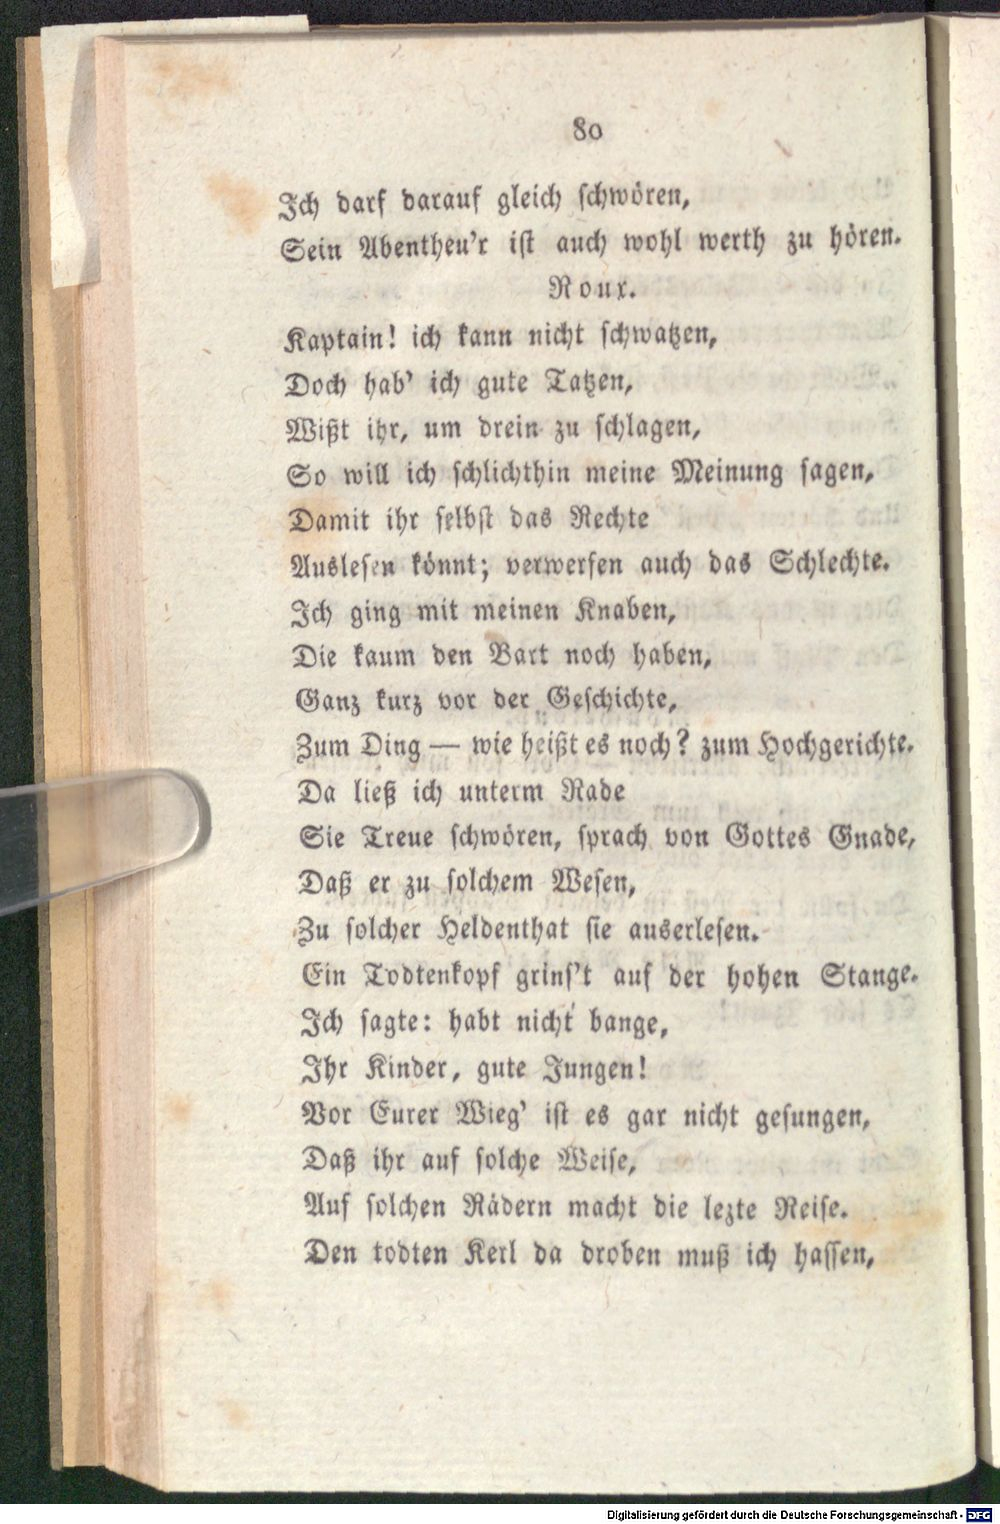 80
Ich darf darauf gleich schwören,
Sein Abentheu'r ist auch wohl werth zu hören.
Roux.
Kaptain! ich kann nicht schwatzen,
Doch hab' ich gute Tatzen,
Wißt ihr, um drein zu schlagen,
So will ich schlichthin meine Meinung sagen,
Damit ihr selbst das Rechte
Auslesen könnt; verwerfen auch das Schlechte.
Ich ging mit meinen Knaben,
Die kaum den Bart noch haben,
Ganz kurz vor der Geschichte,
Zum Ding — wie heißt es noch? zum Hochgerichte.
Da ließ ich unterm Rade
Sie Treue schwören, sprach von Gottes Gnade,
Daß er zu solchem Wesen,
Zu solcher Heldenthat sie auserlesen.
Ein Todtenkopf grins't auf der hohen Stange.
Ich sagte: habt nicht bange,
Ihr Kinder, gute Jungen!
Vor Eurer Wieg' ist es gar nicht gesungen,
Daß ihr auf solche Weise,
Auf solchen Rädern macht die lezte Reise.
Den todten Kerl da droben muß ich hassen,
Digitalisierung gefördert durch die Deutsche Forschungsgemeinschaft - DFG